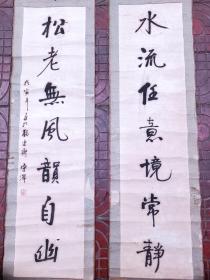 水流任意境常静
松老無風韻自幽